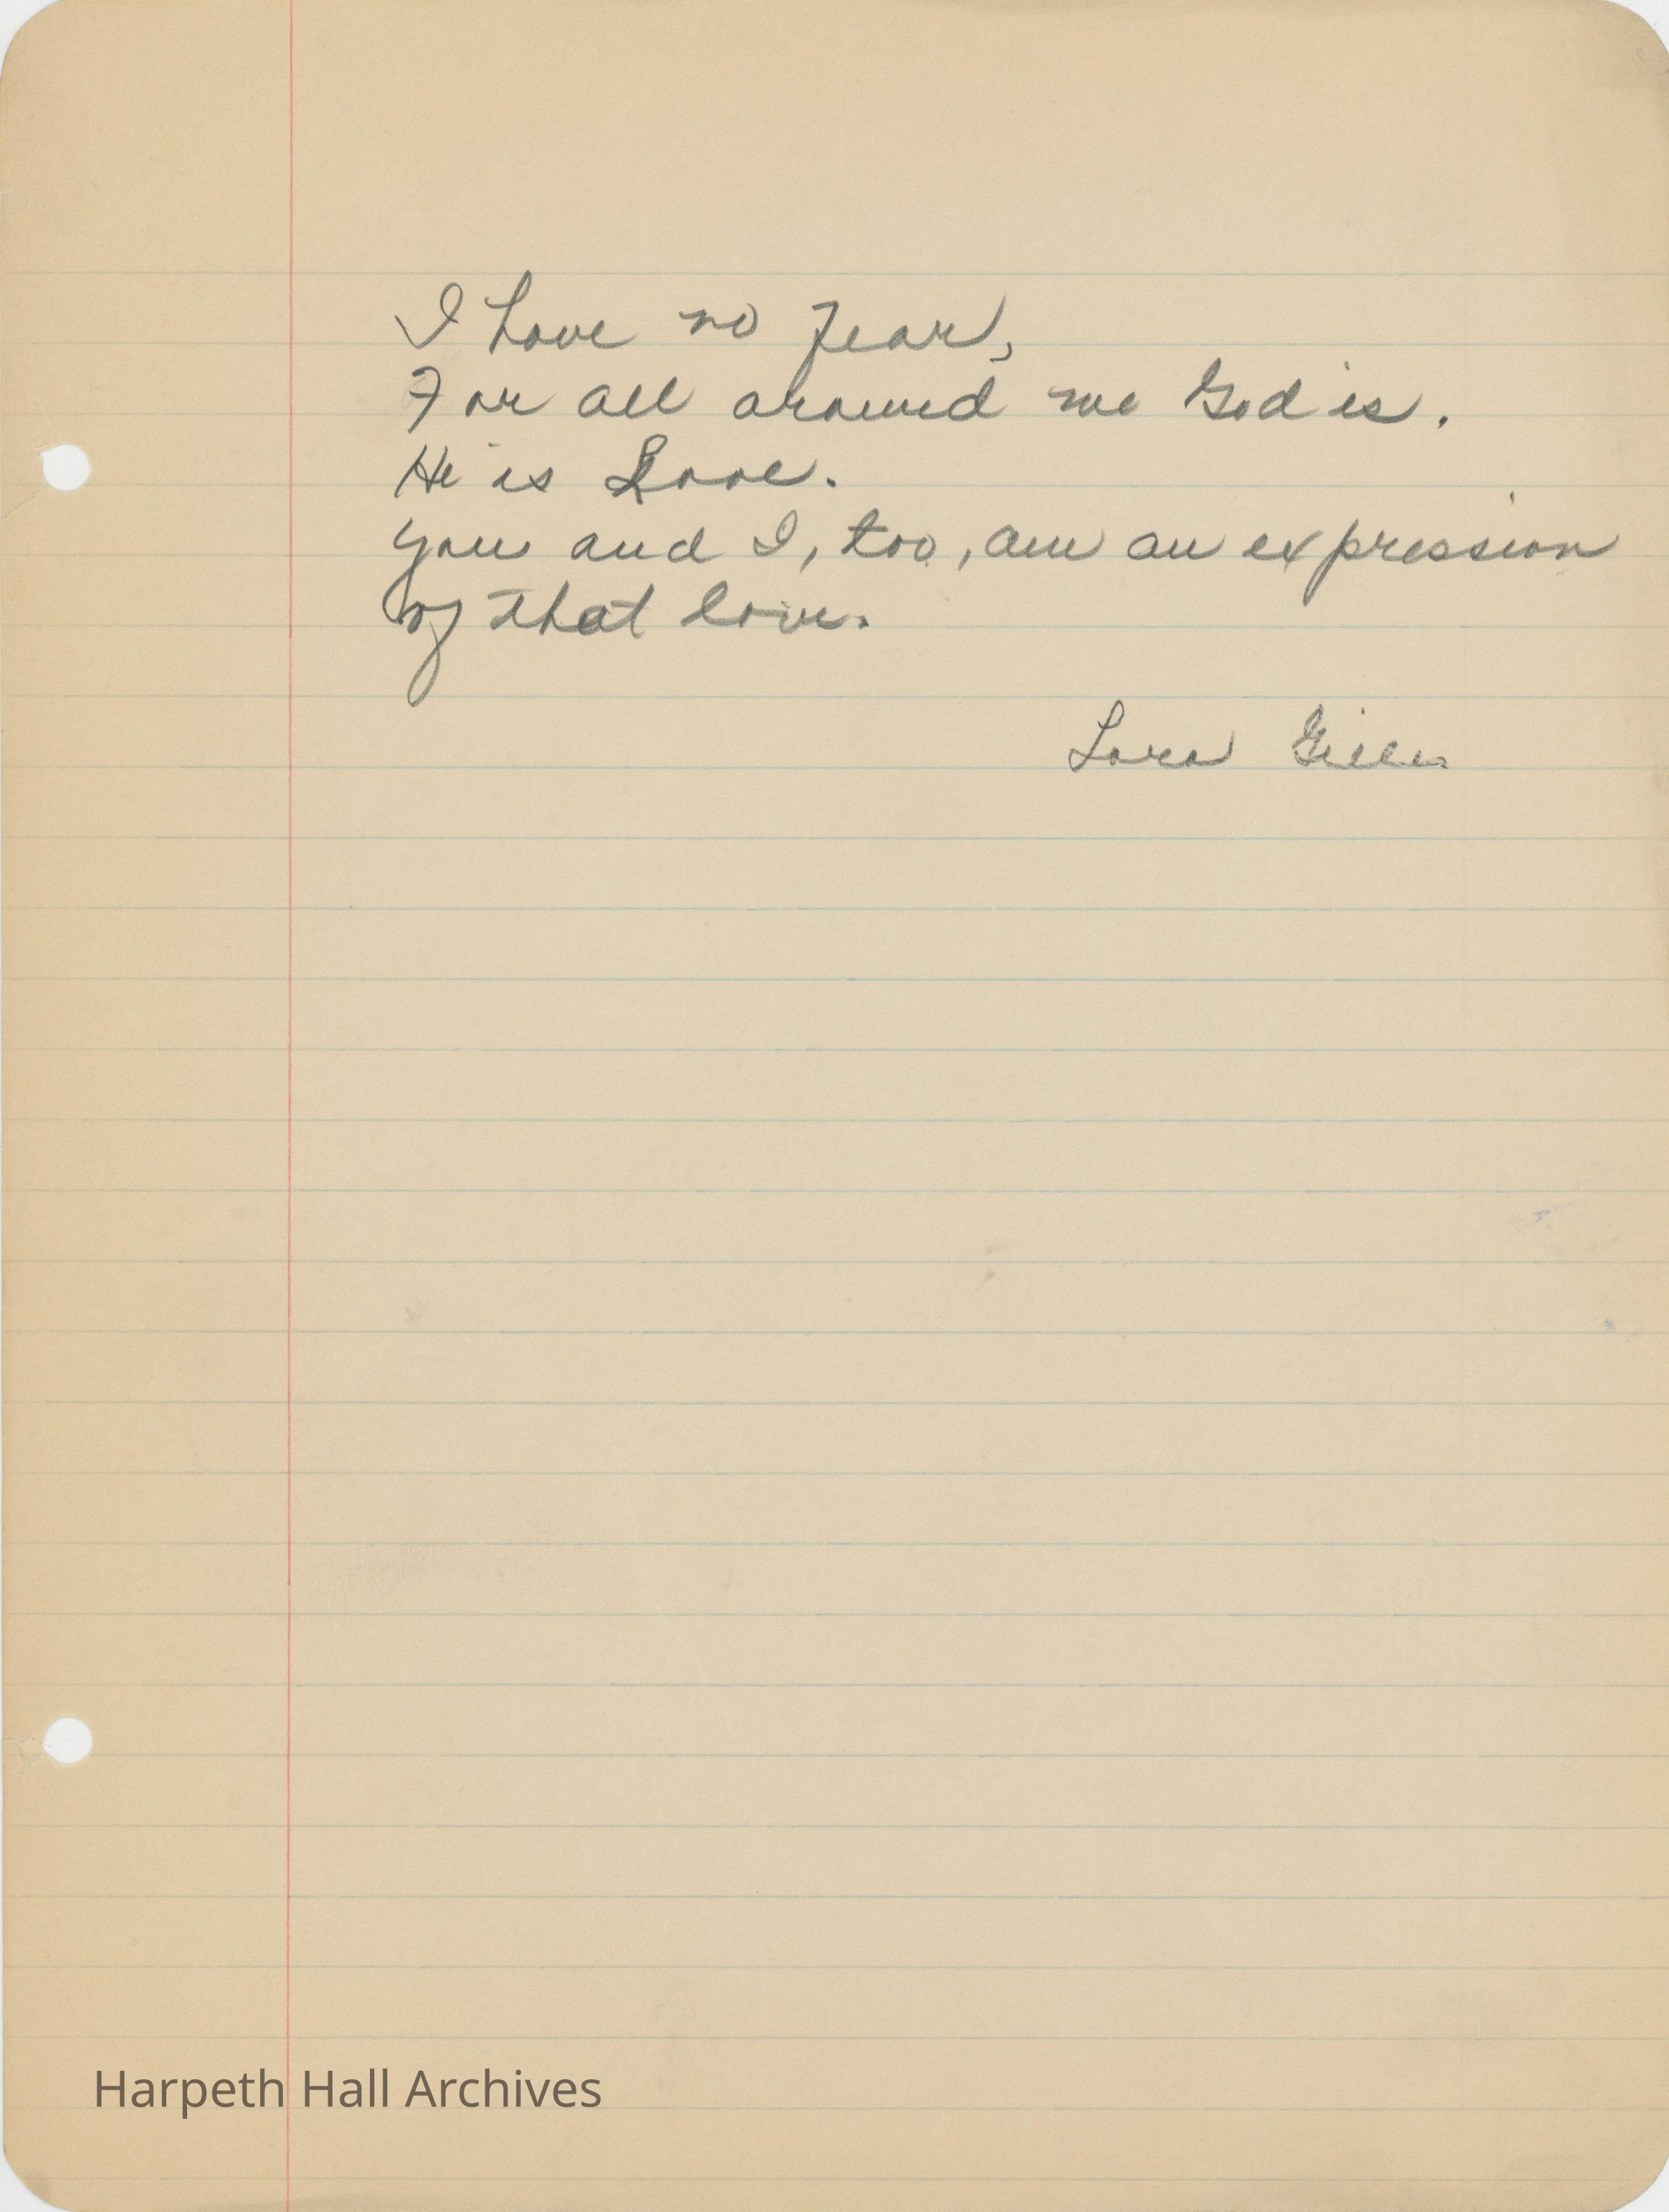 I have no fear,
For all around me God is.
He is Love.
You and I, too, am an expression
of that love.
Lora
Harpeth Hall Archives